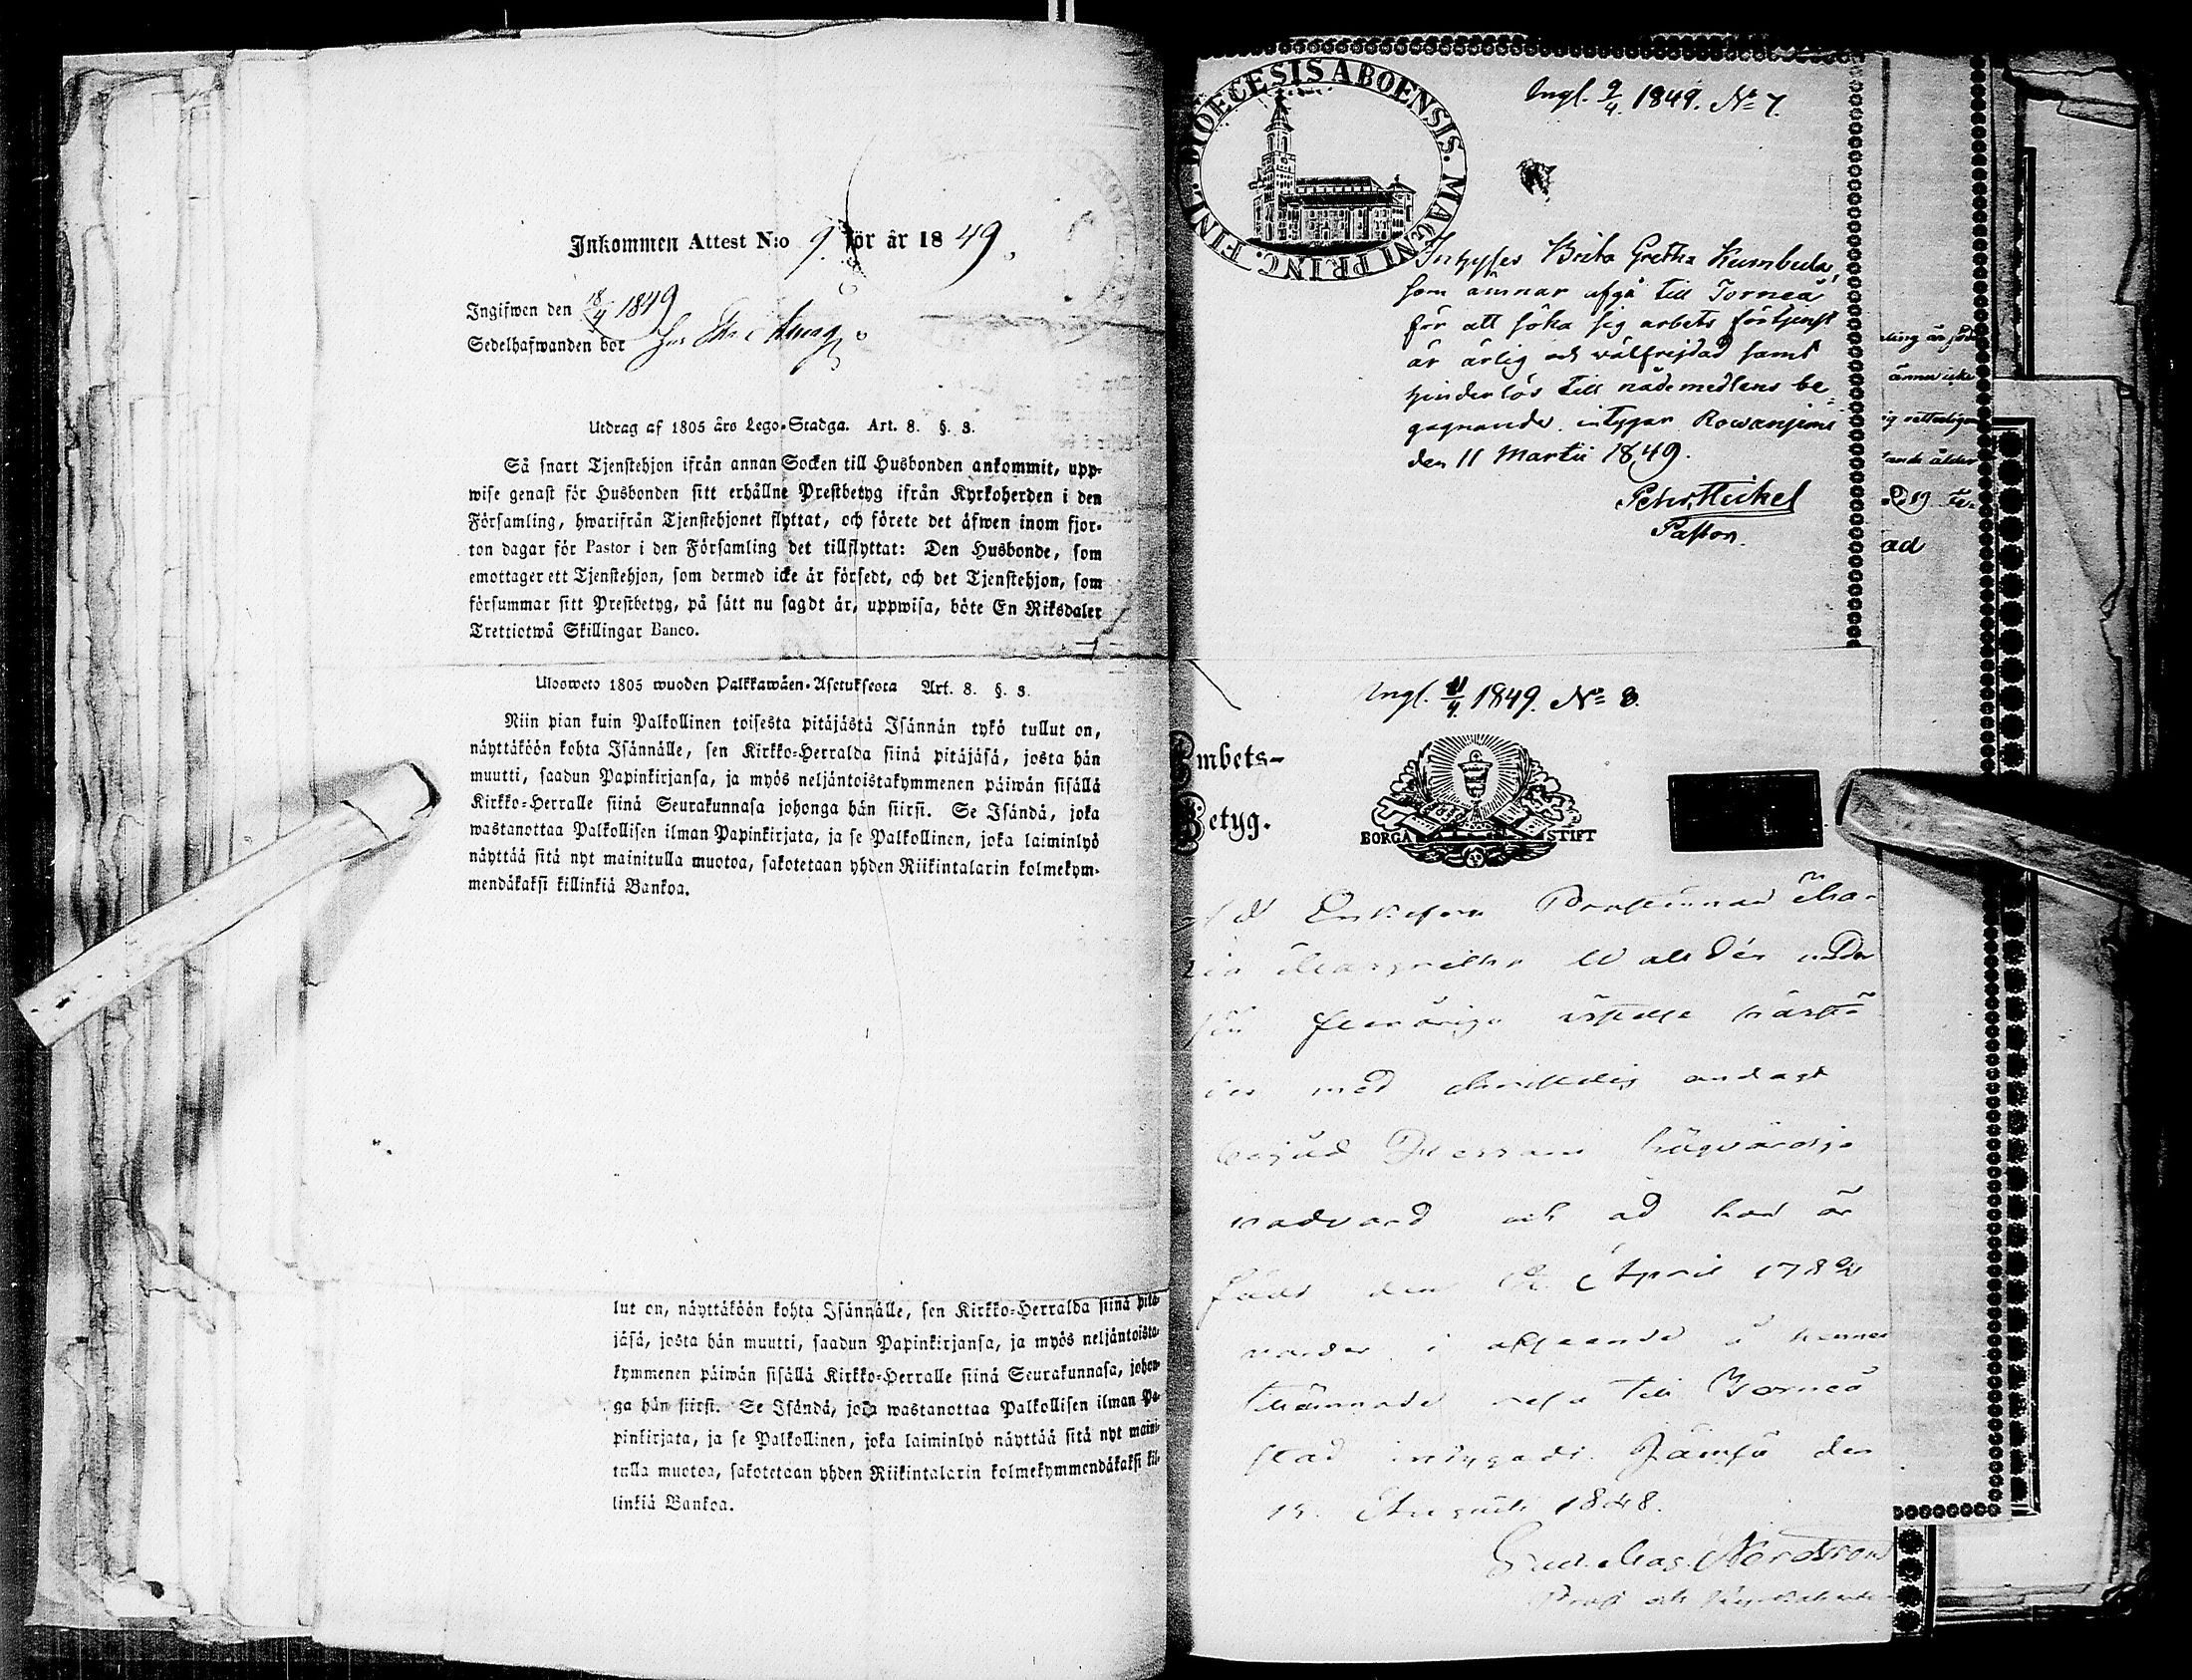 Inkommen Attest N:o 9. för år 1849.
Ingifwen den 18/4 1849
Sedelhafwanden bor
Utdrag af 1805 års Lego-Stadga. Art. 8. §. 3.
Så snart Tjenstehjon ifrån annan Socken till Husbonden ankommit, upp-
wise genast för Husbonden sitt erhållne Prestbetyg ifrån Kyrkoherden i den
Församling, hwarifrån Tjenstehjonet flyttat, och förete det äfwen inom fjor-
ton dagar för Pastor i den Församling det tillflyttat: Den Husbonde, som
emottager ett Tjenstehjon, som dermed icke är försedt, och det Tjenstehjon, som
försummar sitt Prestbetyg, på sätt nu sagdt är, uppwisa, böte En Riksdaler
Trettiotwå Skillingar Banco.
Ulosweto 1805 wuoden Palkkawäen-Asetuksesta Art. 8. §. 3.
Niin pian kuin Palkollinen toisesta pitäjästä Isännän tykö tullut on,
näyttäköön kohta Isännälle, sen Kirkko-Herralda siinä pitäjäsä, josta hän
muutti, saadun Papinkirjansa, ja myös neljäntoistakymmenen päiwän sisällä
Kirkko-Herralle siinä Seurakunnasa johonga hän siirsi. Se Isändä, joka
wastanottaa Palkollisen ilman Papinkirjata, ja se Palkollinen, joka laiminlyö
näyttää sitä nyt mainitulla muotoa, sakotetaan yhden Riikintalarin kolmekym-
mendäkaksi killinkiä Bankoa.
lut on, näyttäköön kohta Isännälle, sen Kirkko-Herralda siinä pitä-
jäsä, josta hän muutti, saadun Papinkirjansa, ja myös neljäntoista-
kymmenen päiwän sisällä Kirkko-Herralle siinä Seurakunnasa, johon-
ga hän siirsi. Se Isändä, joka wastanottaa Palkollisen ilman Pa-
pinkirjata, ja se Palkollinen, joka laiminlyö näyttää sitä nyt maini-
tulla muotoa, sakotetaan yhden Riikintalarin kolmekymmendäkaksi kil-
linkiä Bankoa.
DIOECESIS ABOENSIS. MAGNI PRINC. FINL.
Ingl. 9/4. 1849. No 7.
Intyges Brita Gretha Kumbula,
som ämnar afgå till Torneå
för att söka sig arbets förtjenst
är ärlig och wälfrejdad samt
hinderlös till nådemedlens be-
gagnande. intygar Rowanjemi
den 11 Martii 1849.
Pehr Heikel
Pastor.
Ingl. 11/4. 1849. No 8.
Embets-
Betyg.
BORGÅ STIFT
Enkefru Prostinnan Ma-
ria Margretha Walldén under
sin fleråriga wistelse härstä-
des med christelig andagt
begådt Herrans högvärdiga
nadvard och at hon är
född den April 178
warder i afseende å hennes
tillämnade resa till Torneå
stad intygadt. Jämsä den
15. Augusti 1848.
Nordstrom
Prost och Kyrkoherde
ännu icke
ad